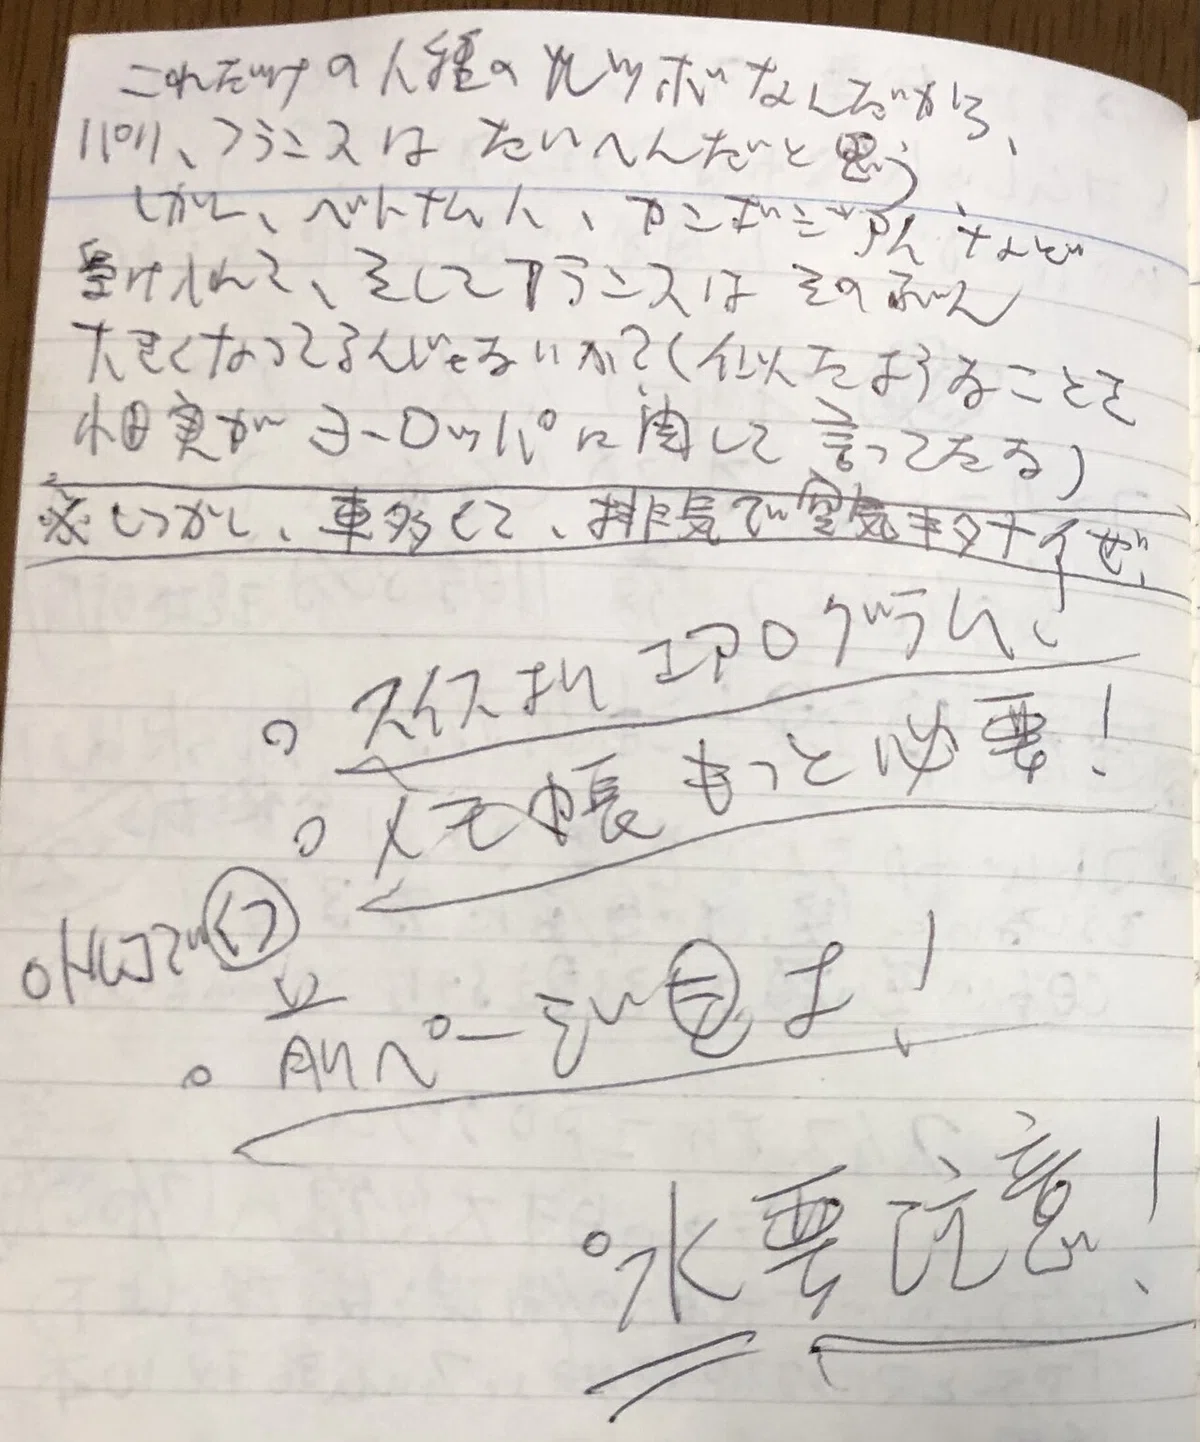 これだけの人種のルツボなんだから、
パリ、フランスはたいへんだと思う
しかし、ベトナム人、カンボジア人などを
受け入れて、そしてフランスはそのぶん
大きくなってるんじゃないか?(似たようなことを
小田実がヨーロッパに関して言ってたな)
※しっかし、車多くて、排気で空気キタナイぜ、
○スイスはエアログラム、
○メモ帳もっと必要!
○ 前ページも見よ!
○水要注意!